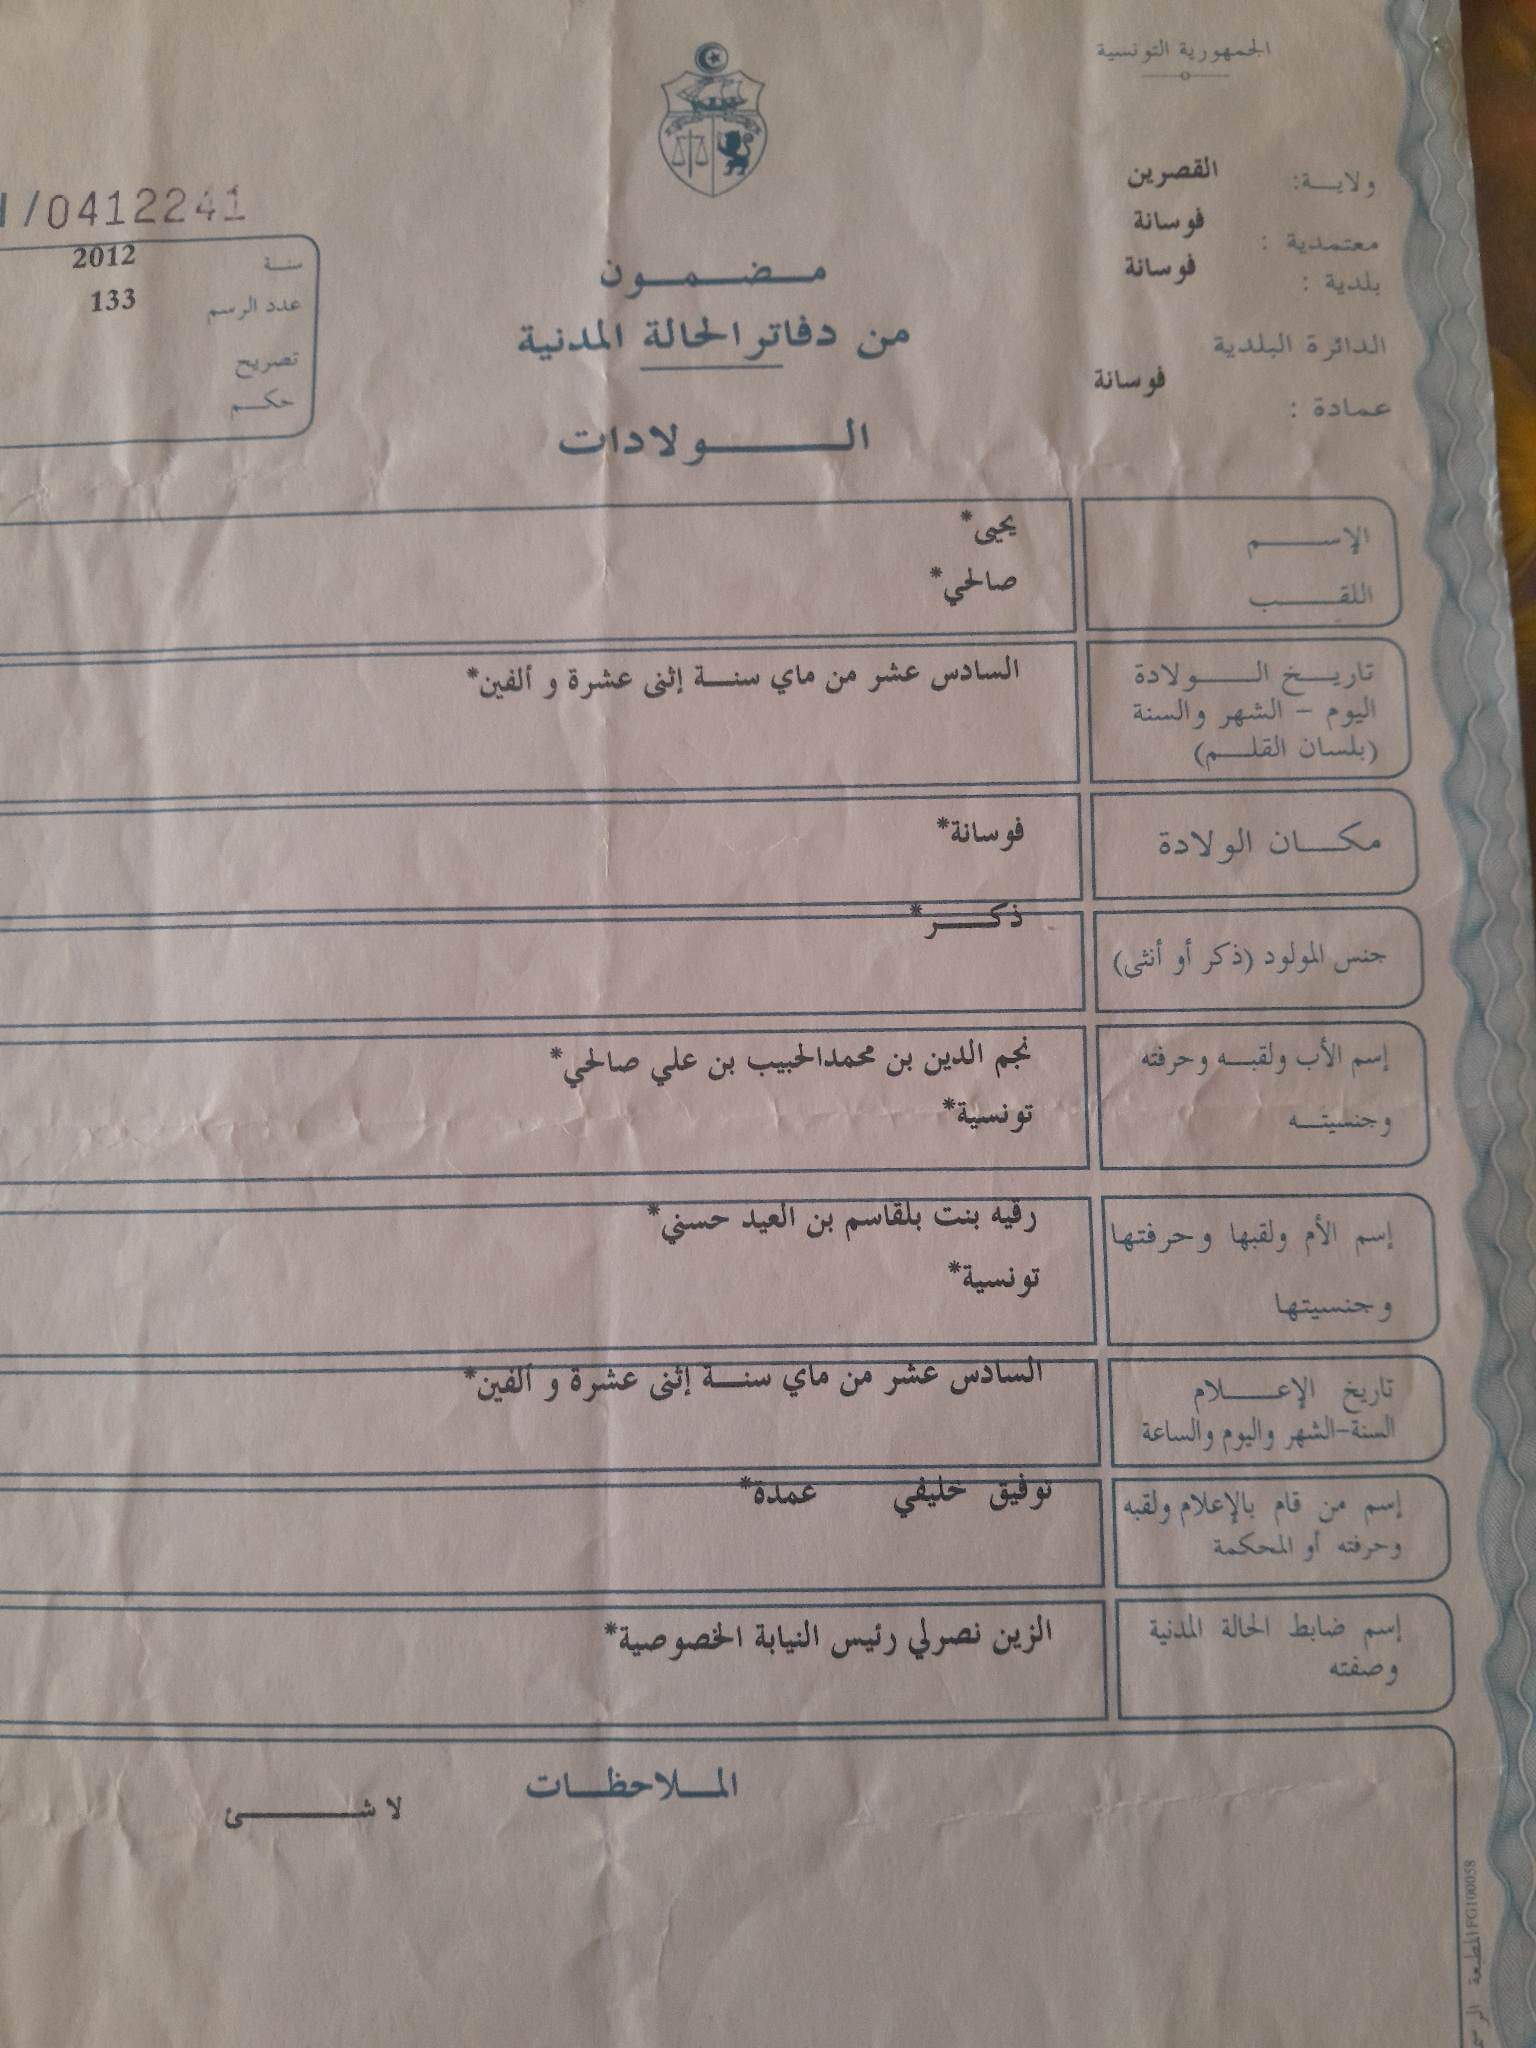 الجمهورية التونسية
ولاية: القصرين
معتمدية : فوسانة
بلدية : فوسانة
الدائرة البلدية
عمادة : فوسانة
/0412241
سنة 2012
عدد الرسم 133
تصريح
حكم
مضمون
من دفاتر الحالة المدنية
الولادات
الإسم يحيى*
اللقب صالحي*
تاريخ الولادة
اليوم - الشهر والسنة
(بلسان القلم)
السادس عشر من ماي سنة إثنى عشرة و ألفين*
مكان الولادة فوسانة*
جنس المولود (ذكر أو أنثى) ذكر*
إسم الأب ولقبه وحرفته نجم الدين بن محمدالحبيب بن علي صالحي*
وجنسيته تونسية*
إسم الأم ولقبها وحرفتها رقيه بنت بلقاسم بن العيد حسني*
وجنسيتها تونسية*
تاريخ الإعلام
السنة-الشهر واليوم والساعة
السادس عشر من ماي سنة إثنى عشرة و ألفين*
إسم من قام بالإعلام ولقبه
وحرفته أو المحكمة
توفيق خليفي عمدة*
إسم ضابط الحالة المدنية
وصفته
الزين نصرلي رئيس النيابة الخصوصية*
الملاحظات
لا شئ
المطبعة FG100058